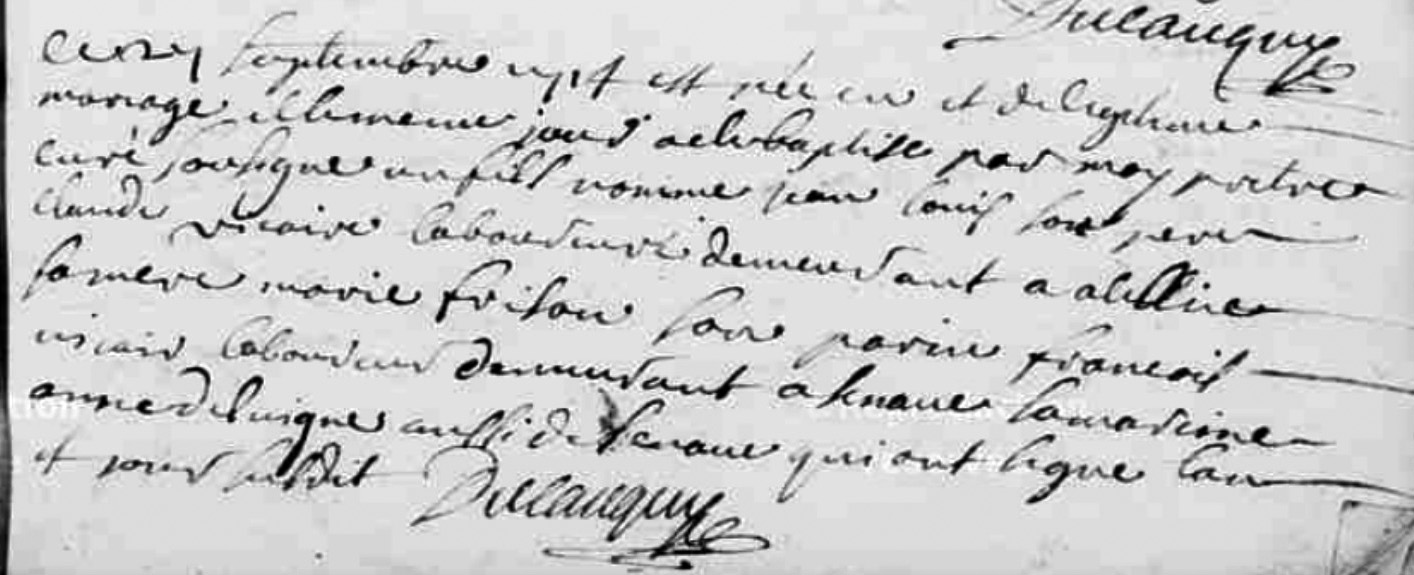 Ducauquy
septembre est née en et de legitime
mariage et le meme jour a ete baptisé par moy pretre
curé sousigne un fils nomme jean louis son pere
claude vicaire laboureure demeurant a
sa mere marie frison son parin francois
vicair laboureur demeurant a sa marine
anne aussi de qui ont signe lan
et jour susdit Ducauquy